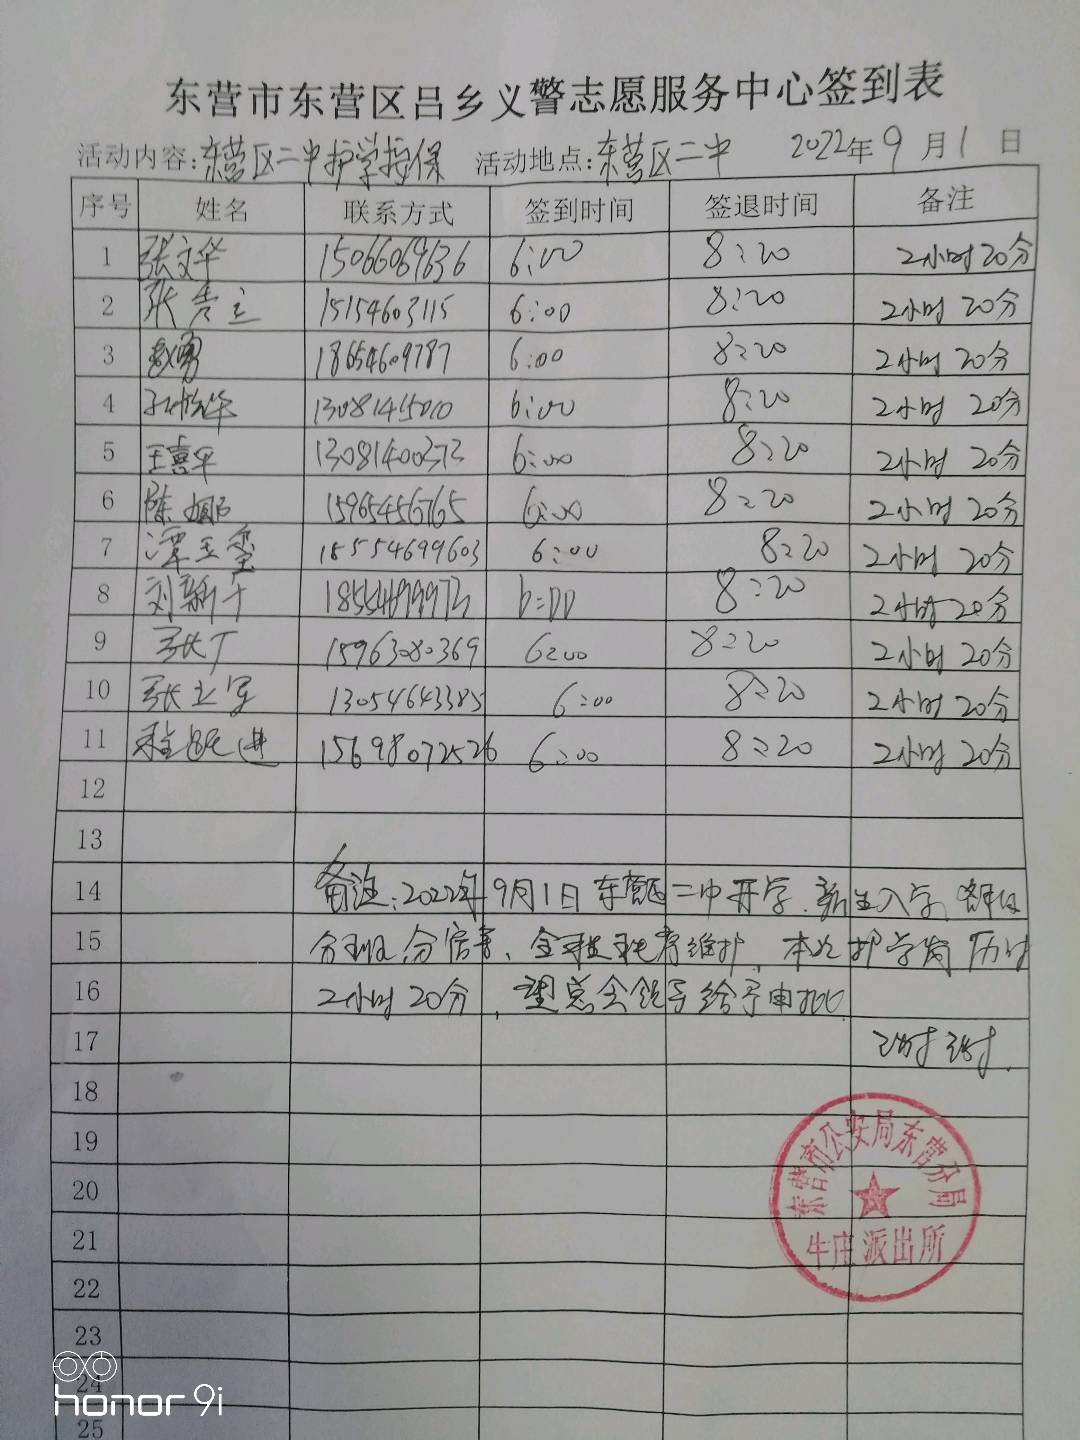 东营市东营区吕乡义警志愿服务中心签到表
活动内容:东营区二中护学授保 活动地点:东营区二中 2022年9月1日
序号 姓名 联系方式 签到时间 签退时间 备注
1 张文华 15066069636 6:00 8:20 2小时20分
2 张 15154603115 6:00 8:20 2小时20分
3 赵勇 18654609787 6:00 8:20 2小时20分
4 13081455010 6:00 8:20 2小时20分
5 王喜平 13081400373 6:00 8:20 2小时20分
6 陈 15965456765 6:00 8:20 2小时20分
7 潭玉玺 18554699603 6:00 8:20 2小时20分
8 刘新千 6:00 8:20 2小时20分
9 张广 15963080369 6:00 8:20 2小时20分
10 张立军 13054643385 6:00 8:20 2小时20分
11 程跃进 15698072526 6:00 8:20 2小时20分
12
13
14 备注:2022年9月1日东营区二中开学.新生入学,
15 分班分宿事、全程秩序维护,本次护学岗历时
16 2小时20分,望总会领导给予审批.
17 谢谢.
18
19
20
21
22
23
24
25
东营市公安局东营分局
牛庄派出所
honor 9i